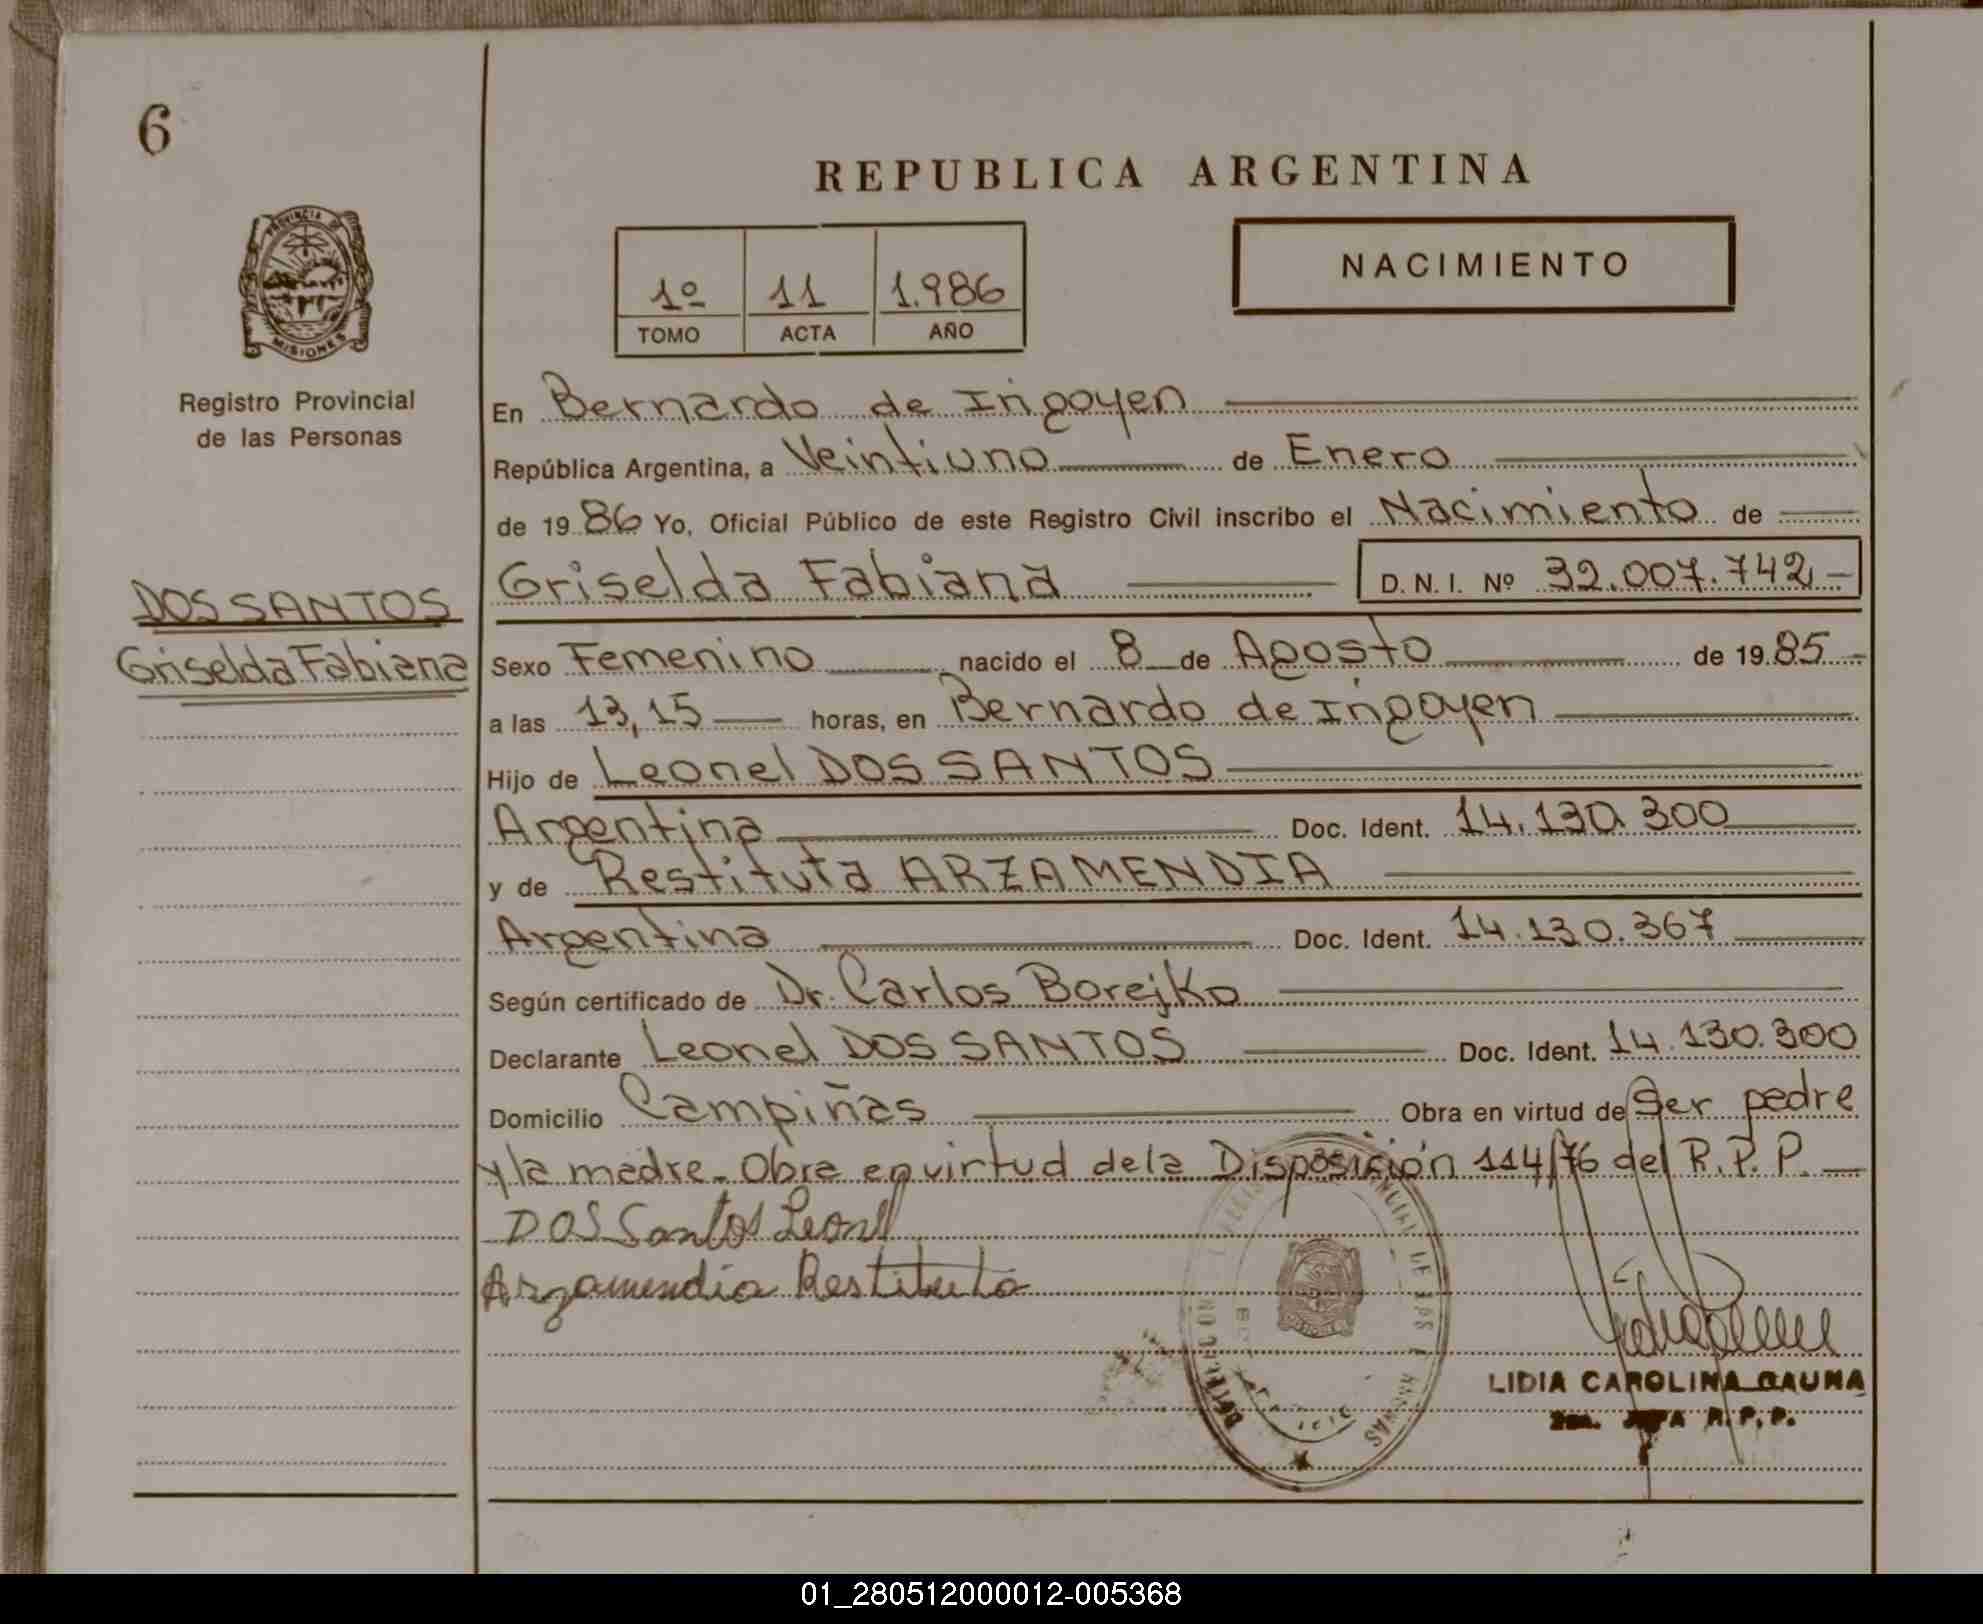 6
REPUBLICA ARGENTINA
PROVINCIA DE
MISIONES
1º 11 1.986
TOMO ACTA AÑO
NACIMIENTO
Registro Provincial
de las Personas
DOS SANTOS
Griselda Fabiana
En Bernardo de Irigoyen
República Argentina, a Veintiuno de Enero
de 1986 Yo, Oficial Público de este Registro Civil inscribo el Nacimiento de
Griselda Fabiana D.N.I. Nº 32.007.742
Sexo Femenino nacido el 8 de Agosto de 1985
a las 13,15 horas, en Bernardo de Irigoyen
Hijo de Leonel DOS SANTOS
Argentina Doc. Ident. 14.130.300
y de Restituta ARZAMENDIA
Argentina Doc. Ident. 14.130.367
Según certificado de Dr. Carlos Borejko
Declarante Leonel DOS SANTOS Doc. Ident. 14.130.300
Domicilio Campiñas Obra en virtud de Ser padre
y la madre - Obra en virtud de la Disposición 114/76 del R.P.P.
DOS Santos Leonel
Arzamendia Restituta
LIDIA CAROLINA GAUNA
JEFA R.P.P.
01_280512000012-005368